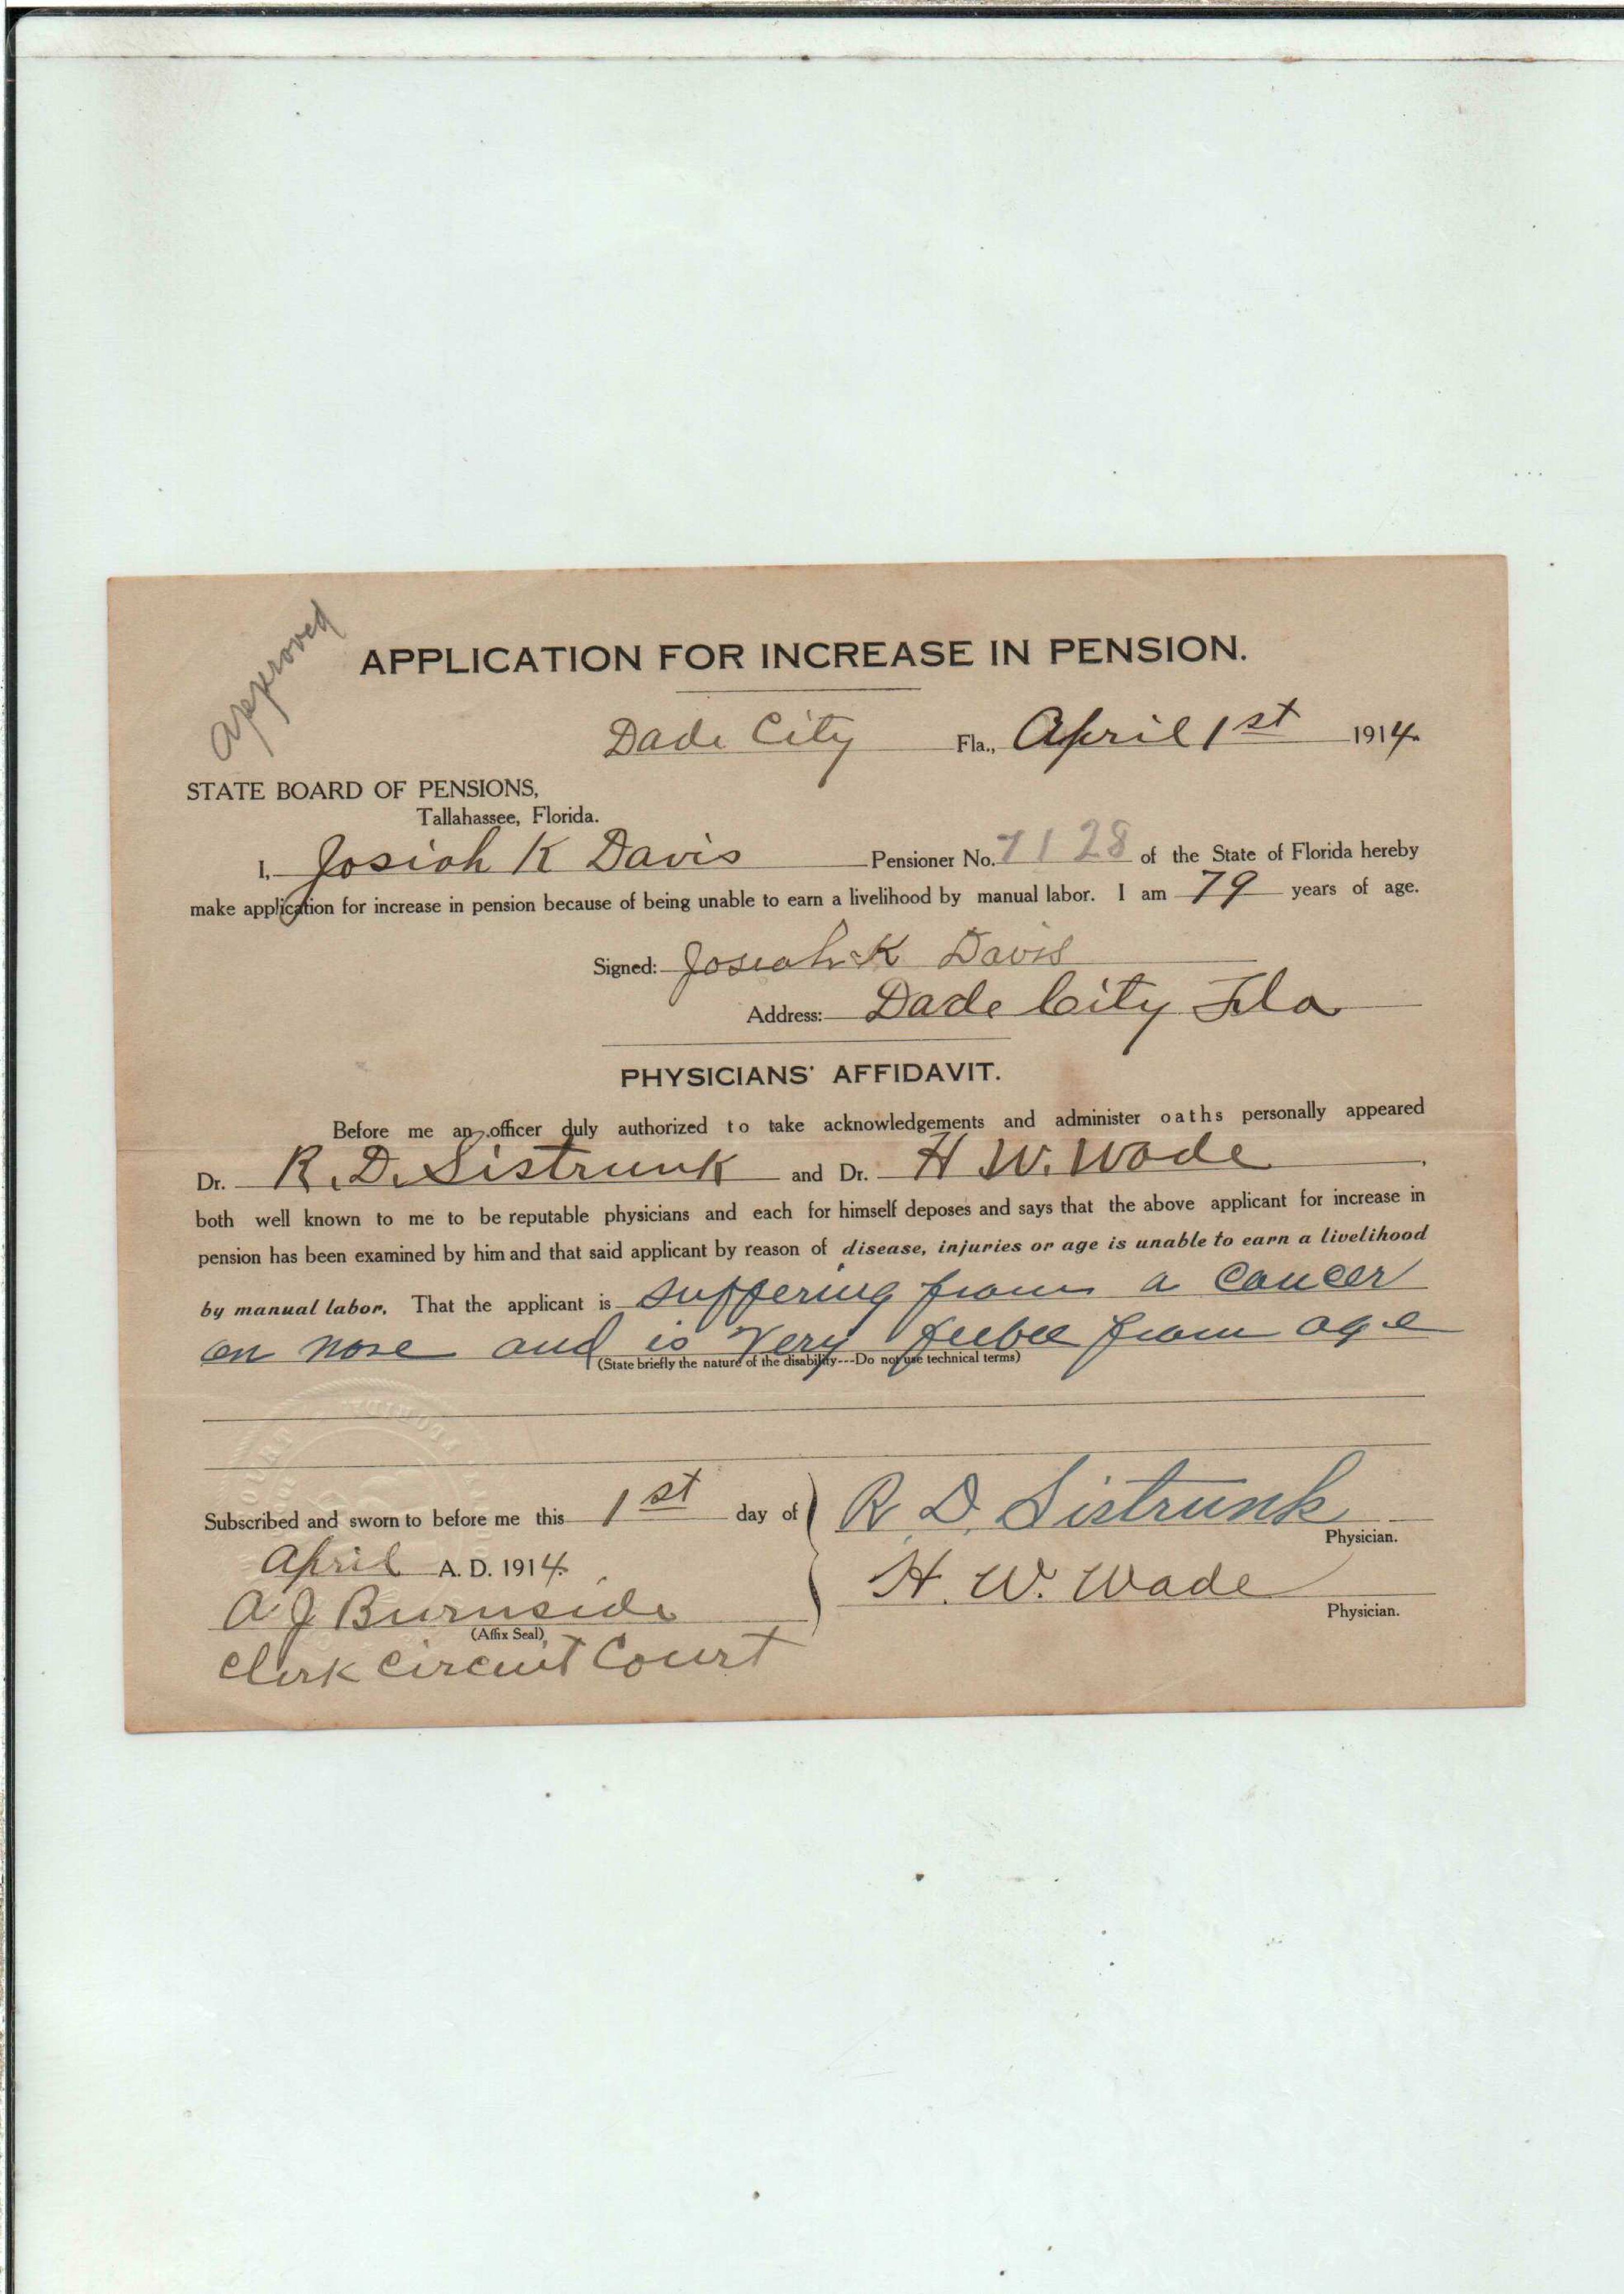 Approved
APPLICATION FOR INCREASE IN PENSION.
Dade City Fla., April 1st 1914.
STATE BOARD OF PENSIONS,
Tallahassee, Florida.
I, Josiah K Davis Pensioner No. 7128 of the State of Florida hereby
make application for increase in pension because of being unable to earn a livelihood by manual labor. I am 79 years of age.
Signed: Josiah K Davis
Address: Dade City Fla
PHYSICIANS' AFFIDAVIT.
Before me an officer duly authorized to take acknowledgements and administer oaths personally appeared
Dr. R. D. Sistrunk and Dr. H W. Wade
both well known to me to be reputable physicians and each for himself deposes and says that the above applicant for increase in
pension has been examined by him and that said applicant by reason of disease, injuries or age is unable to earn a livelihood
by manual labor. That the applicant is suffering from a cancer
on nose and is very feeble from age
(State briefly the nature of the disability---Do not use technical terms)
Subscribed and sworn to before me this 1st day of
April A. D. 1914.
A J Burnside
(Affix Seal)
Clerk Circuit Court
R. D. Sistrunk
Physician.
H. W. Wade
Physician.